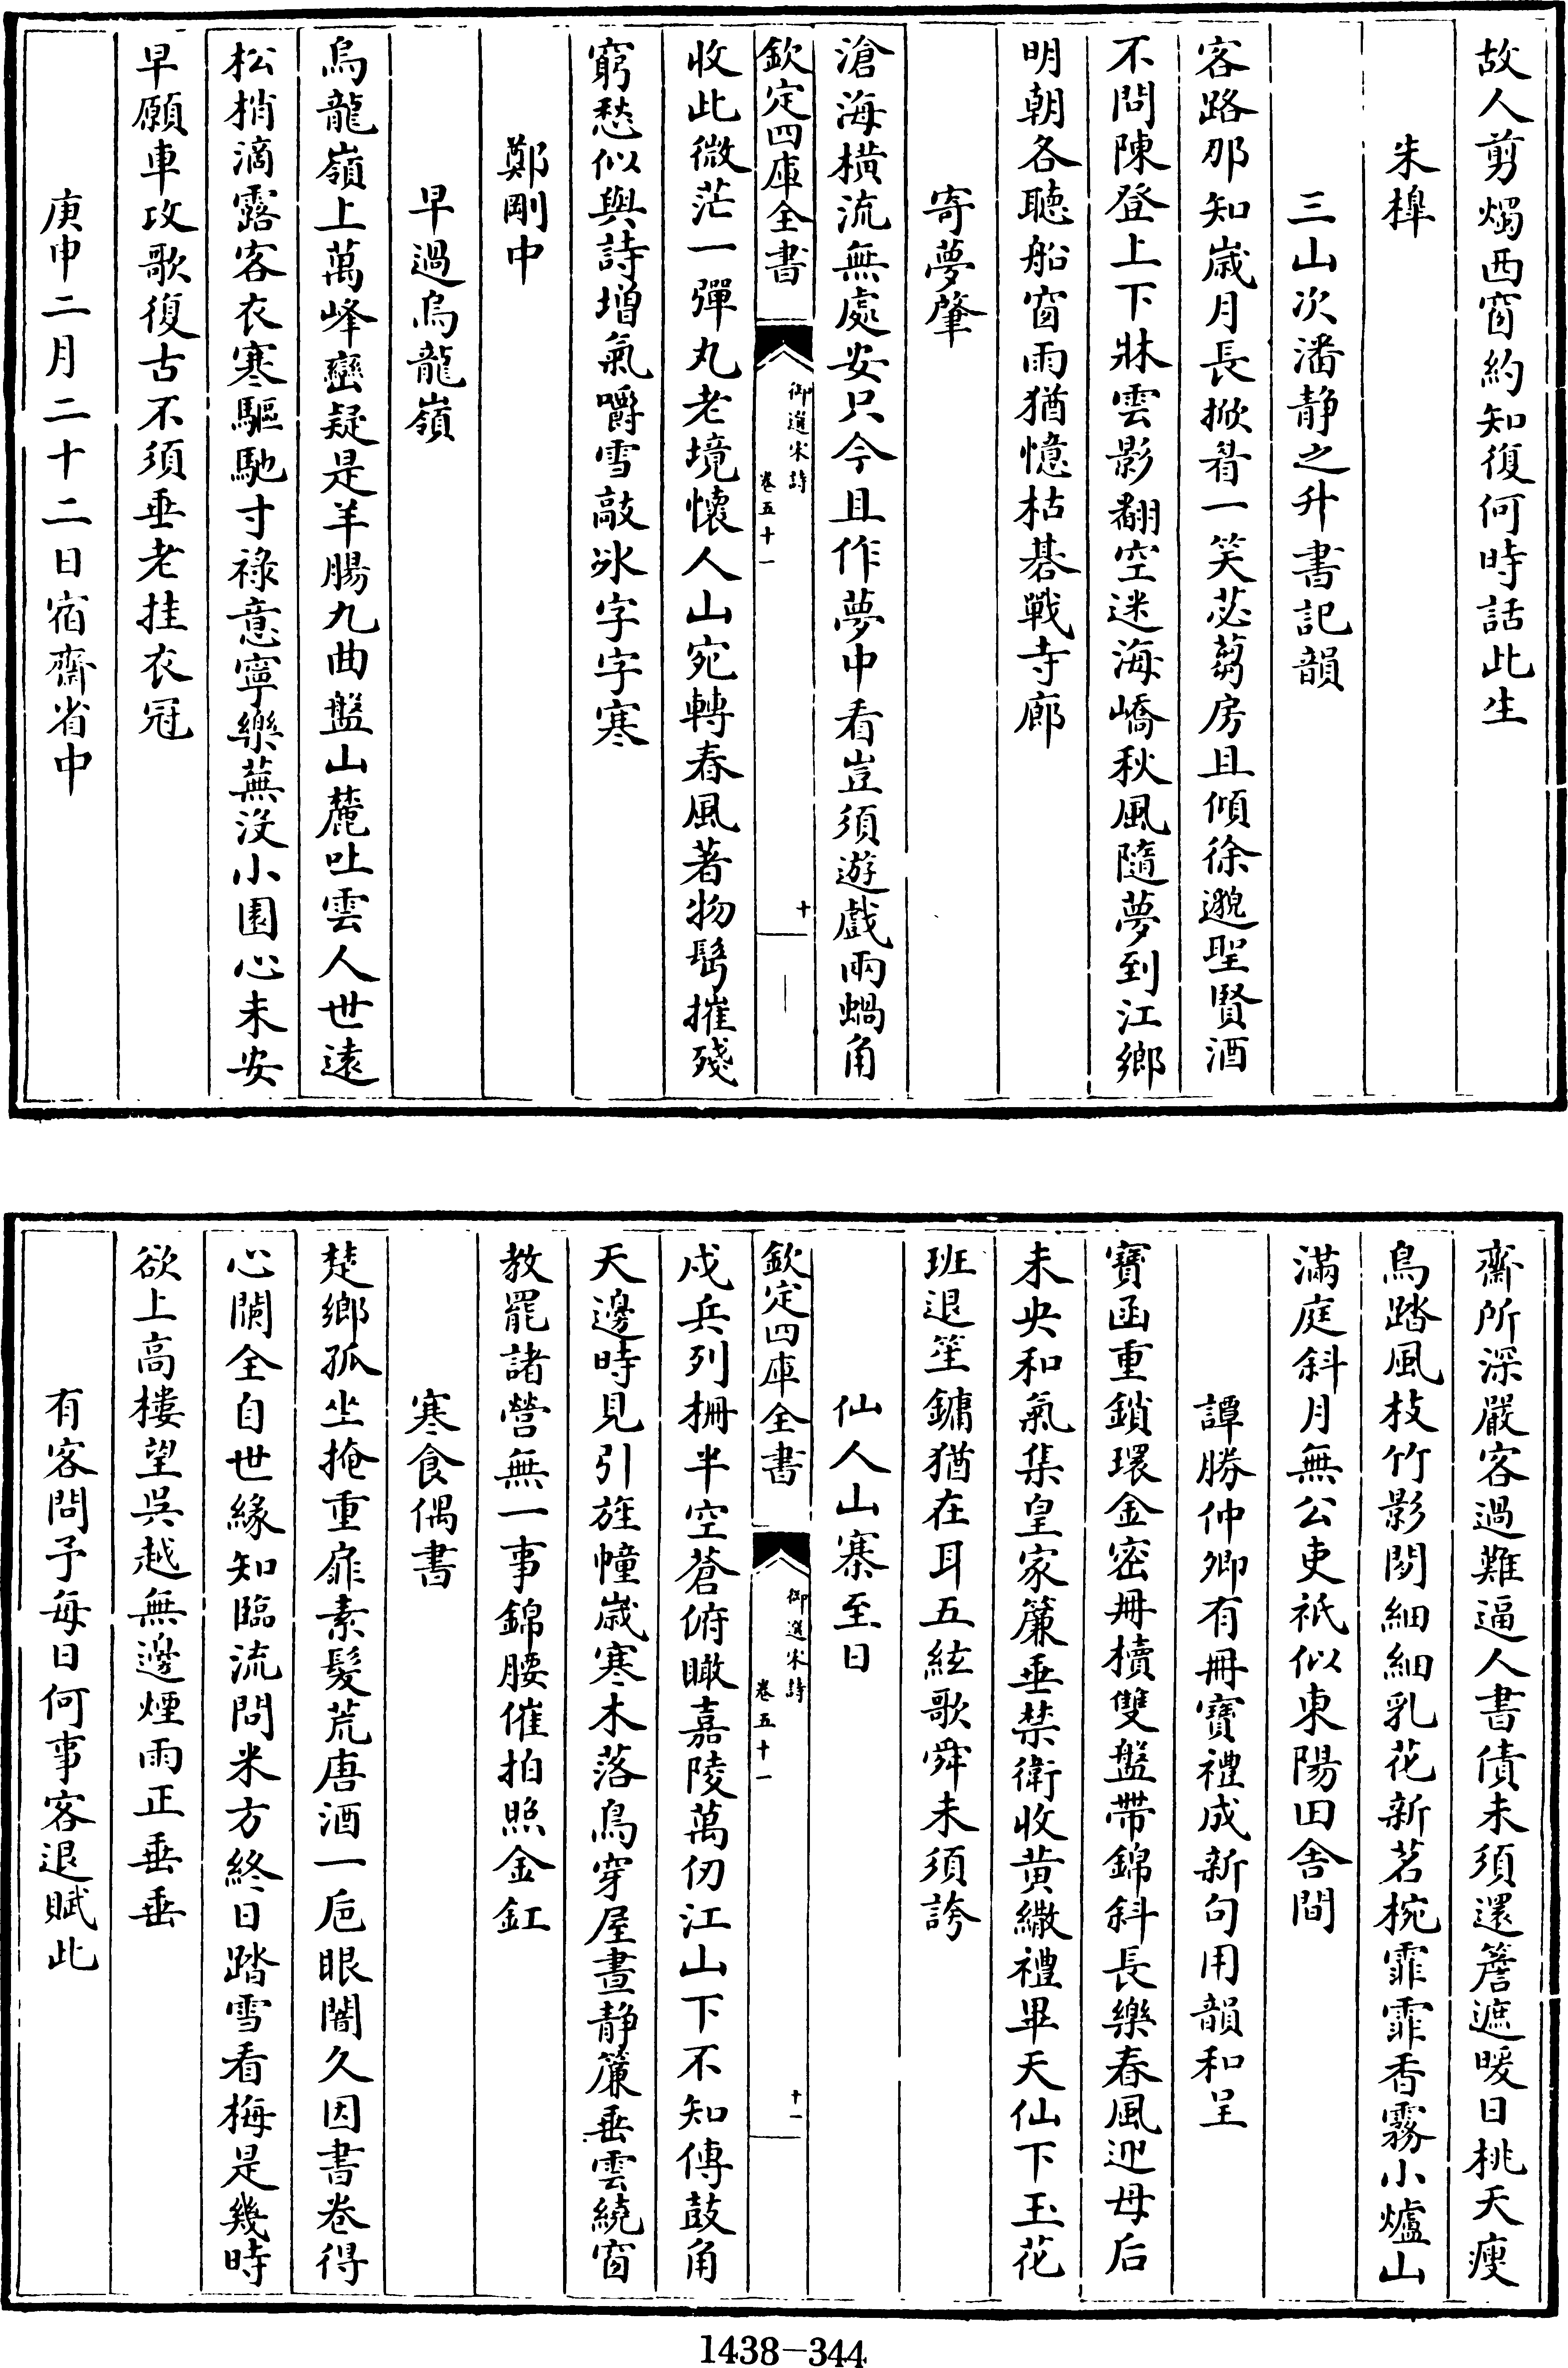 故人剪燭西窗約知復何時話此生
朱槔
三山次潘静之升書記韻
客路那知歲月長掀髯一笑苾蒭房且傾徐邈聖賢酒
不問陳登上下牀雲影翻空迷海嶠秋風隨夢到江鄉
明朝各聽船窗雨猶憶枯碁戰寺廊
寄夢肇
滄海橫流無處安只今且作夢中看豈須遊戲兩蝸角
欽定四庫全書
御選宋詩
卷五十一
十
收此微茫一彈丸老境懷人山宛轉春風著物髩摧殘
窮愁似與詩增氣嚼雪敲冰字字寒
鄭剛中
早過烏龍嶺
烏龍嶺上萬峰巒疑是羊腸九曲盤山麓吐雲人世遠
松梢滴露客衣寒驅馳寸祿意寧樂蕪沒小園心未安
早願車攻歌復古不須垂老挂衣冠
庚申二月二十二日宿齋省中
齋所深嚴客過難逼人書債未須還簷遮暖日桃夭瘦
鳥踏風枝竹影閒細細乳花新茗椀霏霏香霧小爐山
滿庭斜月無公吏祇似東陽田舍間
譚勝仲卿有冊寶禮成新句用韻和呈
寶函重鎖環金密冊櫝雙盤帶錦斜長樂春風迎母后
未央和氣集皇家簾垂禁衛收黄繖禮畢天仙下玉花
班退笙鏞猶在耳五絃歌舜未須誇
仙人山寨至日
欽定四庫全書
御選宋詩
卷五十一
十一
戍兵列柵半空蒼俯瞰嘉陵萬仞江山下不知傳鼓角
天邊時見引旌幢歲寒木落鳥穿屋晝静簾垂雲繞窗
教罷諸營無一事錦腰催拍照金缸
寒食偶書
楚鄉孤坐掩重扉素髮荒唐酒一巵眼闇久因書卷得
心闌全自世緣知臨流問米方終日踏雪看梅是幾時
欲上高樓望吳越無邊煙雨正垂垂
有客問予每日何事客退賦此
1438-344